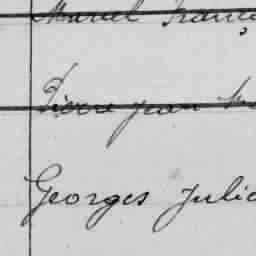 Marcel Franç
Pierre Jean
Georges Julie